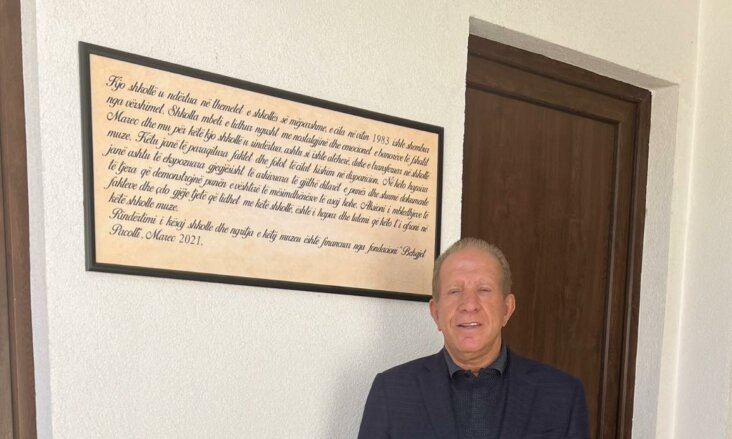 Kjo shkollë u ndërtua në themelet e shkollës së mëparshme, e cila në vitin 1983 ishte shembur
nga vërshimet. Shkolla mbeti e lidhur ngusht me nostalgjinë dhe emocionet e banorëve të fshatit
Marec dhe mu për këtë kjo shkollë u rindërtua, ashtu si ishte atëherë, duke e transferuar në shkollë
muze. Këtu janë të paraqitura faktet dhe fotot të cilat kishim në dispozicion. Në këto hapsira
janë ashtu të ekspozuara gjegjësisht të arkivuara të gjithë ditarët e punës dhe shumë dokumente
të tjera që demonstrojnë punën e vështirë të mësimdhënësve të asaj kohe. Aksioni i mbledhjeve të
fakteve dhe çdo gjëje tjetë që lidhet me këtë shkollë, është i hapur dhe lutemi që këto t'i ofroni në
këtë shkolle muze.
Rindërtimi i kësaj shkolle dhe ngritja e këtij muzeu është financuar nga fondacioni "Behgjet
Pacolli", Marec 2021.